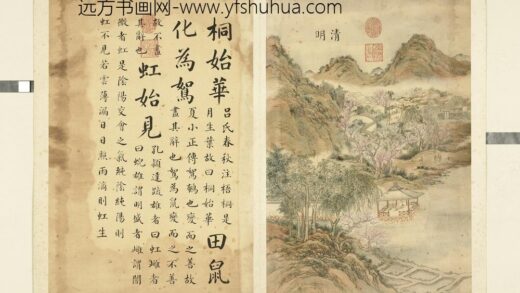 远方书画网 www.yfshuhua.com
清明
桐始華
呂氏春秋注梧桐是
月生葉故曰桐始華
田鼠
化為鴽
夏小正傳鴽鶉也變而之善故
盡其辭也鴽為鼠變而之不善
故不盡
其辭也
虹始見
孔穎達疏雄者曰虹雌者
曰蜺雄謂明盛者雌謂闇
微者虹是陰陽交會之氣純陰純陽則
虹不見若雲薄漏日日照雨滴則虹生